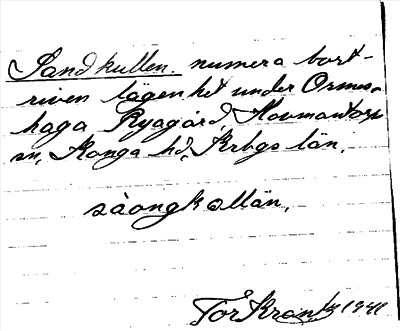 Sandkullen numera bort-
riven lägenhet under Ormes-
haga Ryagård, Hovmantorps
sn, Konga hd, Krbgs län.
sàongkəllän,
Tor Krantz 1941